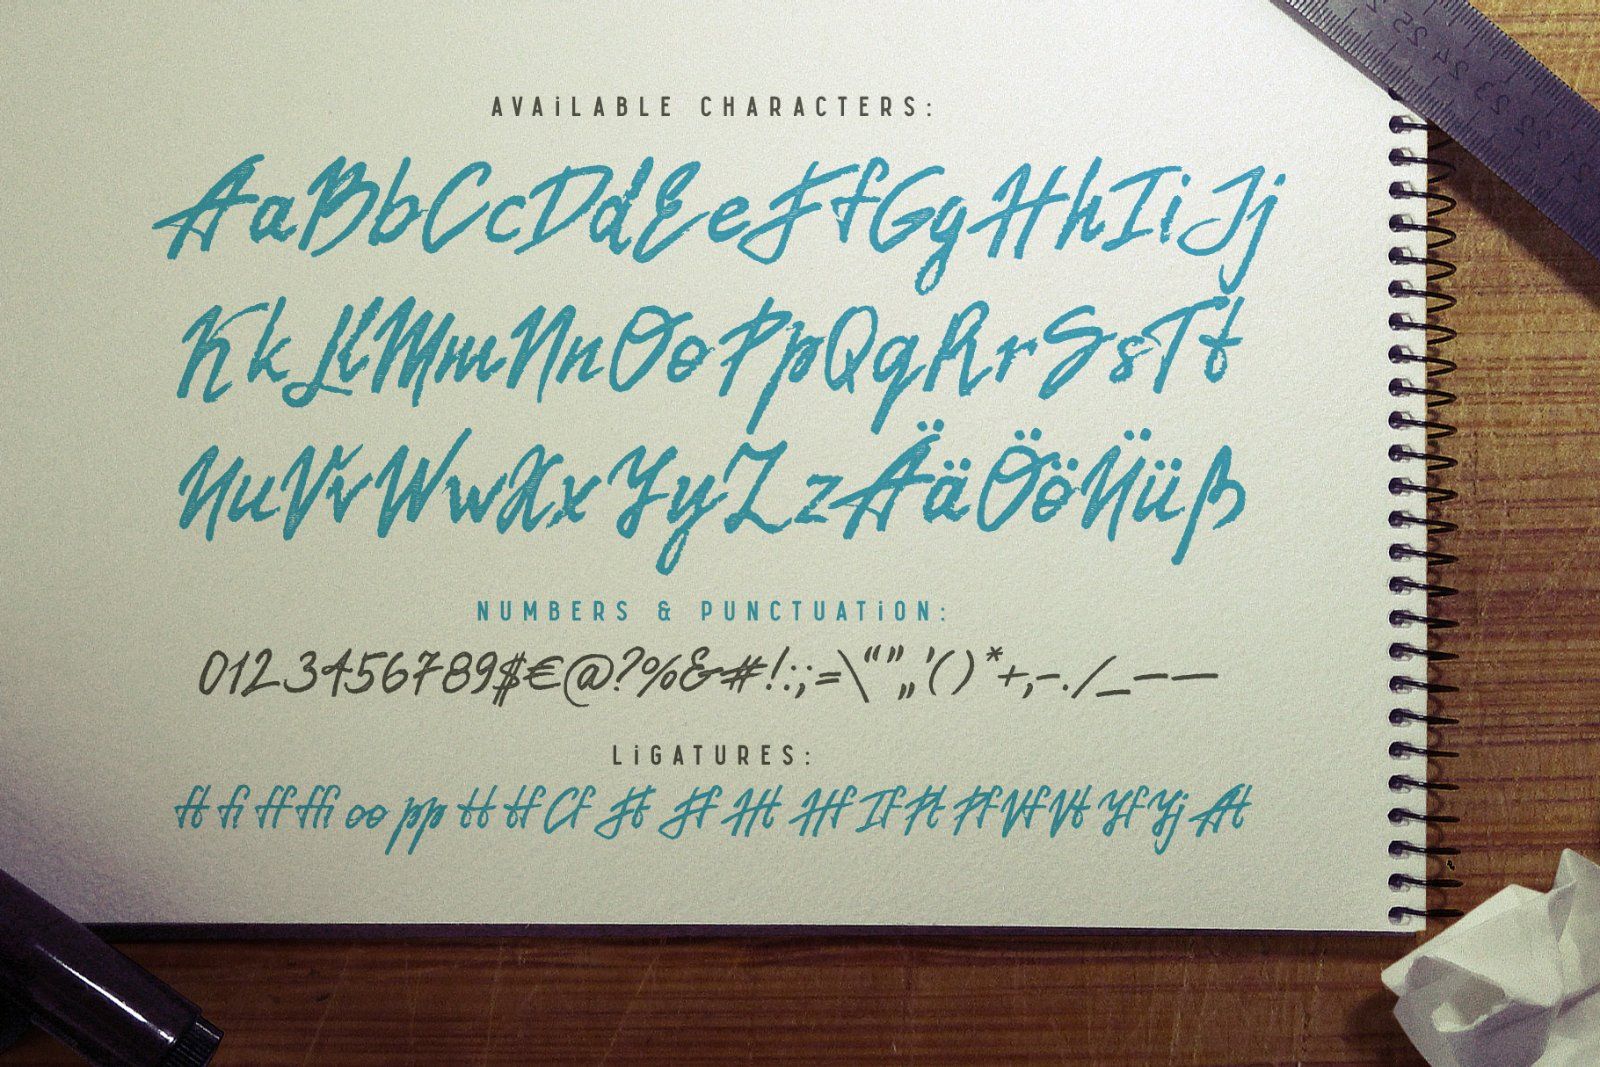 AVAiLABLE CHARACTERS:
AaBbCcDdEeFfGgHhIiJj
KkLlMmNnOoPpQqRrSsTt
UuVvWwXxYyZzÄäÖöÜüß
NUMBERS & PUNCTUATiON:
0123456789$€@?%&#!:;=\“”„’()*+,-./_–—
LiGATURES:
ft fi ff ffi oo pp tt tf Cf Ft Ff Ht Hf If Pt Pf Vf Vt Yf Yj At
25 24 23 22